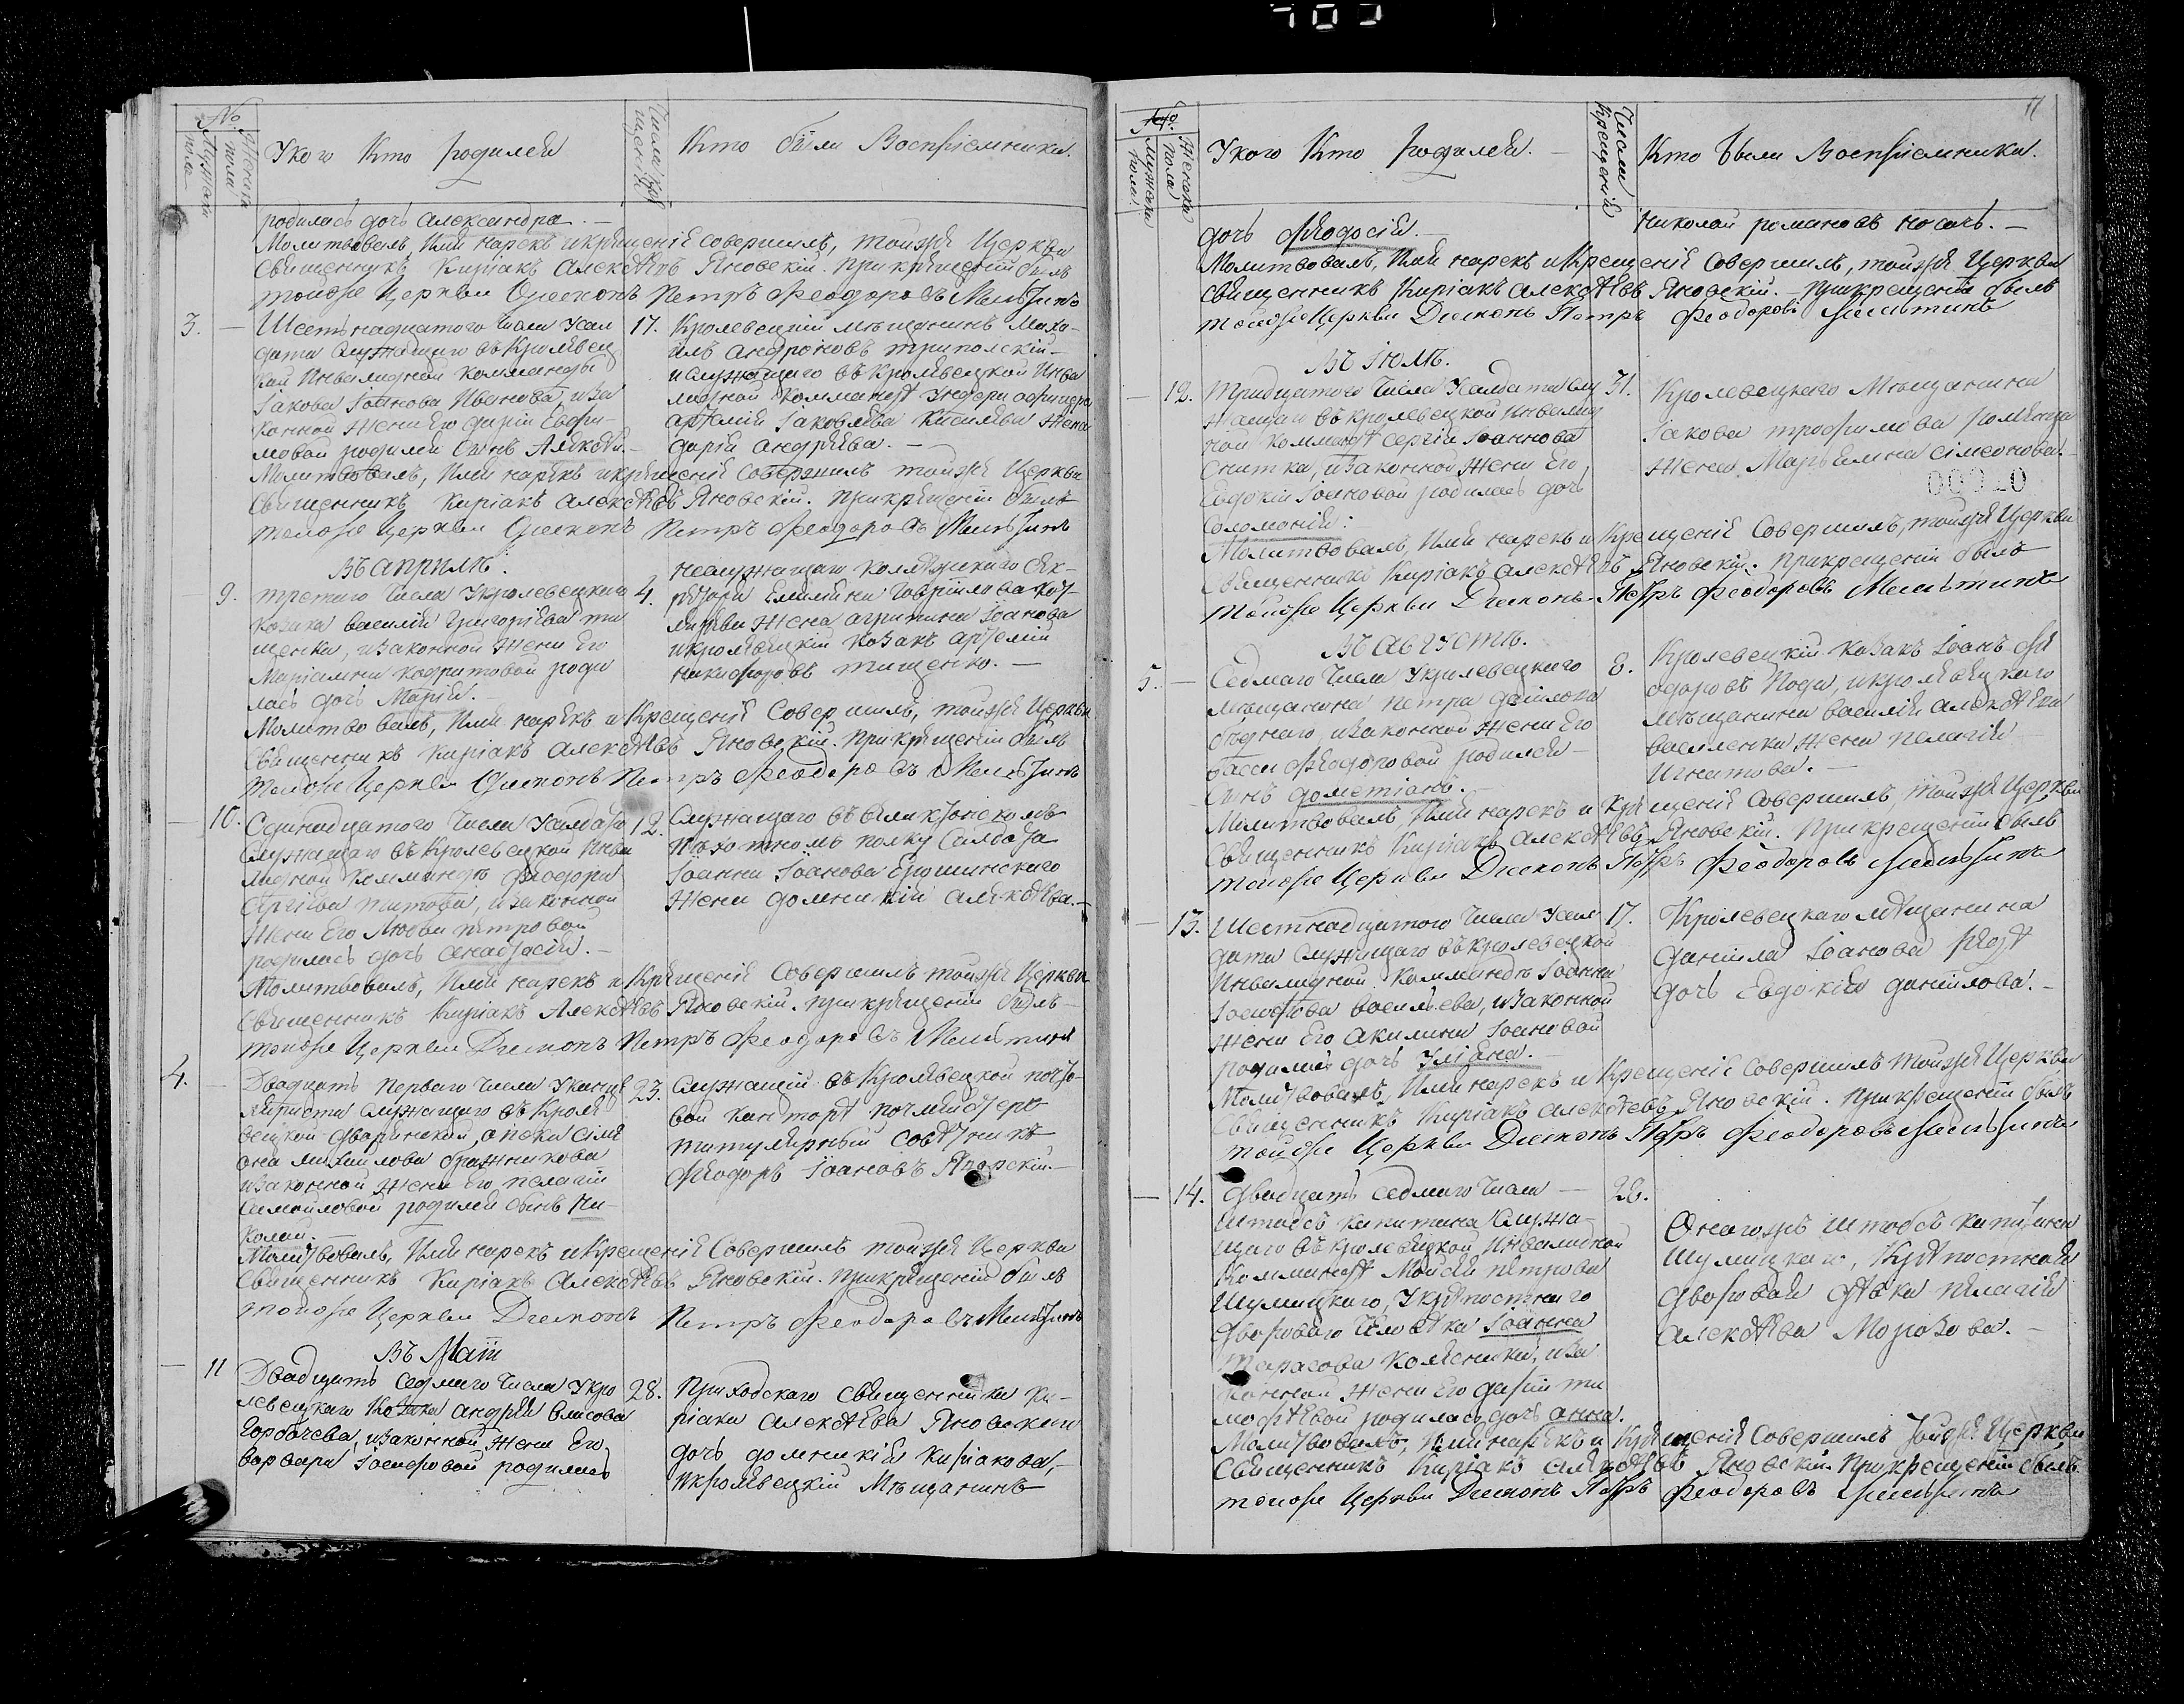 №
Мужеска пола
Женска пола
У кого Кто родился
Числа крещенія
Кто были Воспріемники.
родилась дочь Александра. —
Молитвовалъ, Имя нарекъ и крещеніе совершилъ, тойже Церкви
Священникъ Киріакъ Алексѣевъ Яновскій. При крещеніи былъ
тойже Церкви Дьяконъ Петръ Феодоровъ
3. — Шестьнадцатого числа У сал
дата служащаго въ Кролевец
кой Инвалидной Комманды
Іакова Іоанова Иванова, и за
конной жены Его Дарьи Евфи
мовой родился сынъ Алексѣй. —
17. Кролевецкій мѣщанинъ Миха-
илъ Андроновъ Трипольскій —
и служащаго въ Кролевецкой Инва
лидной Коммандѣ Ундеръ офицера
Артемія Іаковлева Киселева жена
Дарія Андреева. —
Молитвовалъ, Имя нарекъ и крещеніе совершилъ тойже Церкви
Священникъ Киріакъ Алексѣевъ Яновскій. При крещеніи былъ
тойже Церкви Дьяконъ Петръ Феодоровъ
Въ Априлѣ.
9. третого числа У кролевецкого
козака Василія Григоріева Ти
щенка, и законной жены Его
Маріамны родилась дочь Марія. —
4. неслужащаго коллежского Сек-
ретаря Емиліяна Гавріилова
жена Агрипина Іоанова
и кролевецкій козакъ Артемій
Никифоровъ Тищенко. —
Молитвовалъ, Имя нарекъ и Крещеніе Совершилъ, тойже Церкви
Священникъ Киріакъ Алексѣевъ Яновскій. При крещеніи былъ
тойже Церкви Дьяконъ Петръ Феодоровъ
— 10. Одинадцатого числа У салдата
служащаго въ Кролевецкой Инва
лидной Коммандѣ Феодора
Сергіева Титова, и законной
жены Его Любви Петровой
родилась дочь Анастасія. —
12. Служащаго въ
Пѣхотномъ полку Салдата
Іоанна Іоанова
жена Домникія Алексѣева. —
Молитвовалъ, Имя нарекъ и Крещеніе Совершилъ тойже Церкви
Священникъ Киріакъ Алексѣевъ Яновскій. При крещеніи былъ
тойже Церкви Дьяконъ Петръ Феодоровъ
4. — Двадцать первого числа У канце
ляриста служащаго въ Кроле
вецкой дворянской опеки Симе
она Михаилова Бражникова
и законной жены Его Пелагіи
Самойловой родился сынъ Ни-
колай. —
23. Служащій въ Кролевецкой почто-
вой канторѣ почмейстеръ
титулярный совѣтникъ
Феодоръ Іоановъ Яворскій. —
Молитвовалъ, Имя нарекъ и Крещеніе Совершилъ тойже Церкви
Священникъ Киріакъ Алексѣевъ Яновскій. При крещеніи былъ
тойже Церкви Дьяконъ Петръ Феодоровъ
Въ Маіи
— 11 Двадцать седмаго числа У кро
левецкаго козака Андрея Власова
Горбачева, и законной жены Его
Варвары Іосифовой родилась
28. Приходскаго священника Ки-
ріака Алексѣева Яновскаго
дочь Домникія Киріакова, —
и кролевецкій Мѣщанинъ
11
№
Мужеска пола
Женска пола
У кого Кто родился. —
Числа Крещенія
Кто были Воспріемники.
дочь Феодосія. —
Николай Романовъ Носачъ. —
Молитвовалъ, Имя нарекъ и Крещеніе Совершилъ, тойже Церкви
Священникъ Киріакъ Алексѣевъ Яновскій. При крещеніи былъ
тойже Церкви Дьяконъ Петръ Феодоровъ
Въ Іюлѣ.
— 12. Тридцатого числа У салдата слу
жащаго въ кролевецкой инвалид
ной коммандѣ Сергія Іоаннова
Снитка, и законной жены Его,
Евдокіи Іоановой родилась дочь
Соломонія:
31. Кролевецкого Мѣщанина
Іакова Трофимова
жена Марья Симеонова.
00010
Молитвовалъ, Имя нарекъ и Крещеніе Совершилъ, тойже Церкви
Священникъ Киріакъ Алексѣевъ Яновскій. При крещеніи былъ
тойже Церкви Дьяконъ Петръ Феодоровъ
Въ Августѣ.
5. — Седмаго числа У кролевецкого
мѣщанина Петра Данілова
Бѣднаго, и законной жены Его
Феодоровой родился
сынъ Дометіанъ. —
8. Кролевецкій козакъ Іоанъ Фе
одоровъ, и кролевецкаго
мѣщанина Василія Алексѣева
Василенка жена Пелагія
Игнатова. —
Молитвовалъ, Имя нарекъ и Крещеніе Совершилъ, тойже Церкви
Священникъ Киріакъ Алексѣевъ Яновскій. При крещеніи былъ
тойже Церкви Дьяконъ Петръ Феодоровъ
— 13. Шестнадцатого числа У сал
дата служащаго въ кролевецкой
Инвалидной Коммандѣ Іоанна
Іосифова Васильева, и законной
жены Его Акилины Іоановой
родилась дочь Уліана. —
17. Кролевецкаго мѣщанина
Даніила Іоанова
дочь Евдокія Даніилова. —
Молитвовалъ, Имя нарекъ и Крещеніе Совершилъ тойже Церкви
Священникъ Киріакъ Алексѣевъ Яновскій. При крещеніи былъ
тойже Церкви Дьяконъ Петръ Феодоровъ
— 14. Двадцать седмаго числа —
Штабсъ капитана служа
щаго въ кролевецкой Инвалидной
Коммандѣ Моисея Петрова
Шумицкаго, У крѣпостнаго
дворового человѣка Іоанна
Тарасова, и за
конной жены Его Дарьи Ти
мофѣевой родилась дочь Анна.
28. Онагожъ штабсъ капитана
Шумицкаго, Крѣпостная
дворовая дѣвка Пелагія
Алексѣева Морозова. —
Молитвовалъ, Имя нарекъ и Крещеніе Совершилъ тойже Церкви
Священникъ Киріакъ Алексѣевъ Яновскій. При крещеніи былъ
тойже Церкви Дьяконъ Петръ Феодоровъ